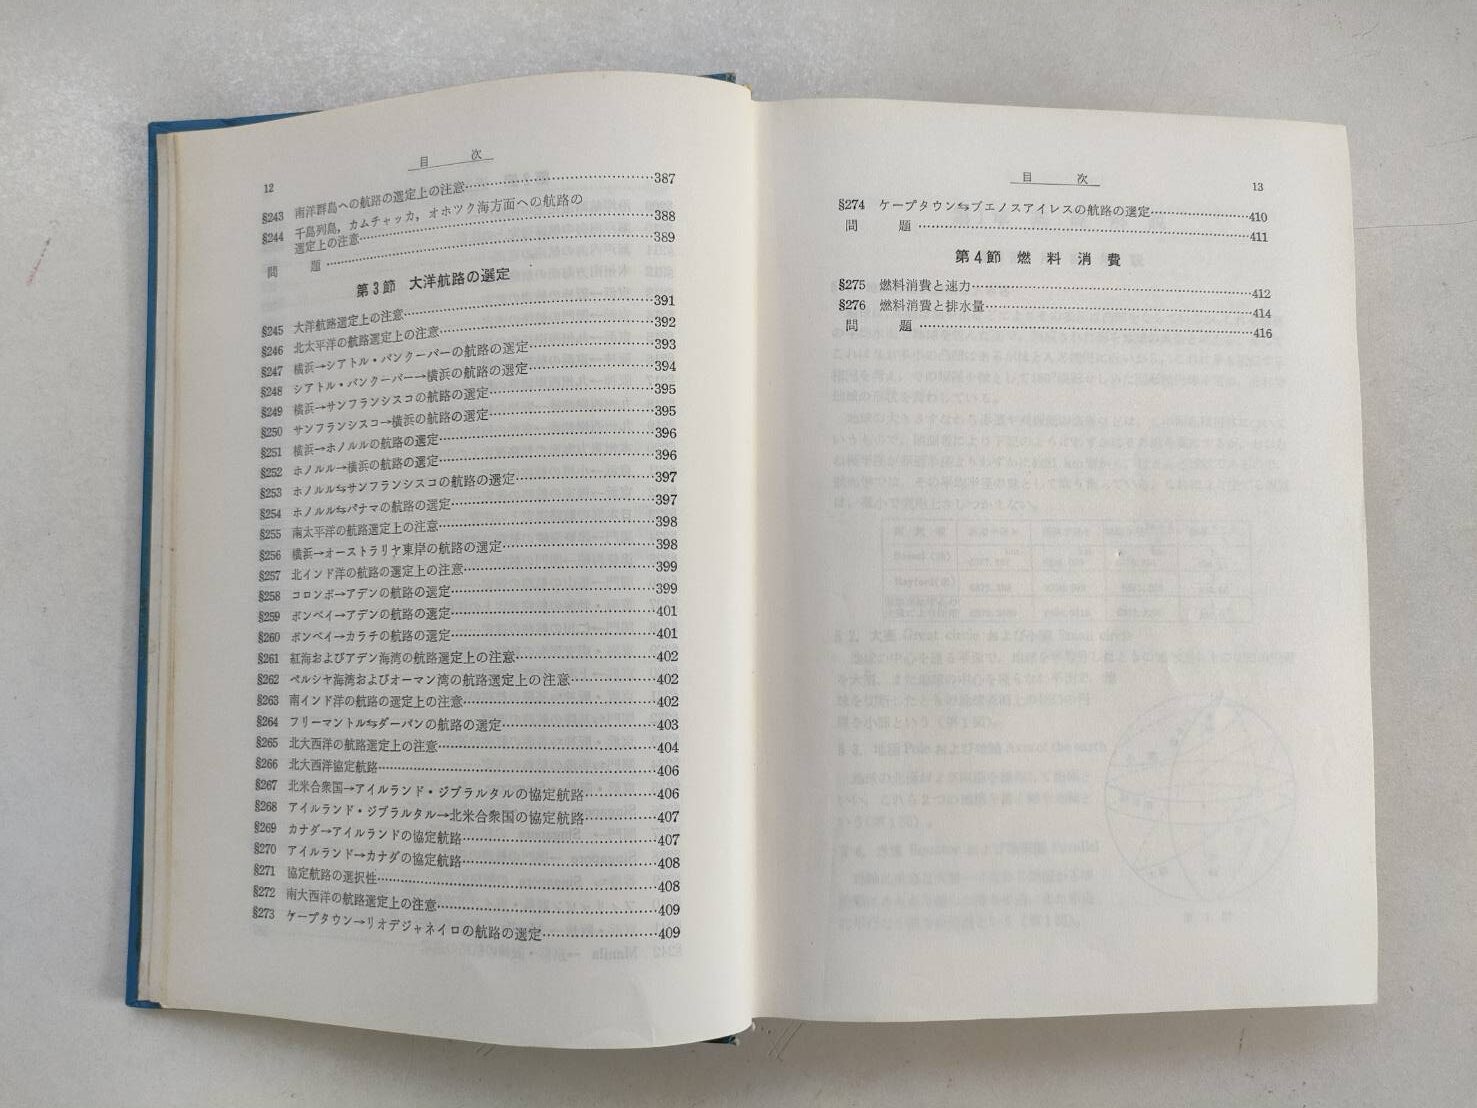 目 次
12
§243 南洋群島への航路の選定上の注意……387
§244 千島列島，カムチャッカ，オホツク海方面への航路の
選定上の注意……388
問 題……389
第3節 大洋航路の選定
§245 大洋航路選定上の注意……391
§246 北太平洋の航路選定上の注意……392
§247 横浜→シアトル・バンクーバーの航路の選定……393
§248 シアトル・バンクーバー→横浜の航路の選定……394
§249 横浜→サンフランシスコの航路の選定……395
§250 サンフランシスコ→横浜の航路の選定……395
§251 横浜→ホノルルの航路の選定……396
§252 ホノルル→横浜の航路の選定……396
§253 ホノルル⇆サンフランシスコの航路の選定……397
§254 ホノルル⇆パナマの航路の選定……397
§255 南太平洋の航路選定上の注意……398
§256 横浜→オーストラリヤ東岸の航路の選定……398
§257 北インド洋の航路の選定上の注意……399
§258 コロンボ→アデンの航路の選定……399
§259 ボンベイ→アデンの航路の選定……401
§260 ボンベイ→カラチの航路の選定……401
§261 紅海およびアデン海湾の航路選定上の注意……402
§262 ペルシヤ海湾およびオーマン湾の航路選定上の注意……402
§263 南インド洋の航路の選定上の注意……402
§264 フリーマントル⇆ダーバンの航路の選定……403
§265 北大西洋の航路選定上の注意……404
§266 北大西洋協定航路……406
§267 北米合衆国→アイルランド・ジブラルタルの協定航路……406
§268 アイルランド・ジブラルタル→北米合衆国の協定航路……407
§269 カナダ→アイルランドの協定航路……407
§270 アイルランド→カナダの協定航路……408
§271 協定航路の選択性……408
§272 南大西洋の航路選定上の注意……409
§273 ケープタウン→リオデジャネイロの航路の選定……409
目 次
13
§274 ケープタウン⇆ブエノスアイレスの航路の選定……410
問 題……411
第4節 燃料消費
§275 燃料消費と速力……412
§276 燃料消費と排水量……414
問 題……416